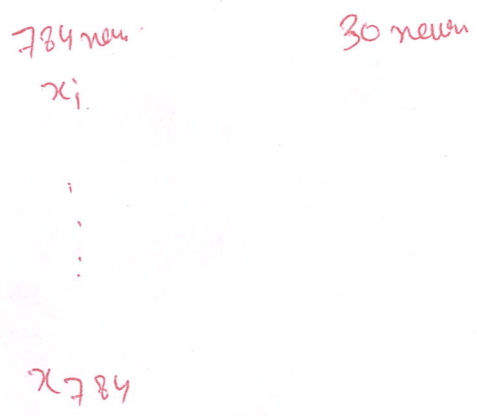 784 neu 30 neurn
xi
x784